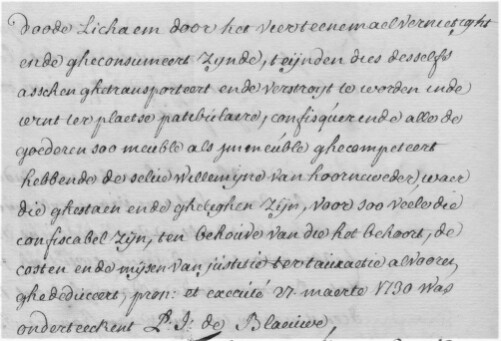 doode Lichaem door het vier teenemael vernietight
ende gheconsumeert zijnde, teijnden dies desselfs
asschen ghetransporteert ende verstroijt te worden inde
ter plaetse patibulaire, confisquerende alle de
goederen soo meuble als immeuble ghecompeteert
hebbende de selve Willemijne van hoorneweder, waer
die ghestaen ende gheleghen zijn, voor soo veele die
confiscabel zijn, ten behoive van die het behoort, de
costen ende mijsen van justitie ter tauxactie alvooren
ghededuceert, pron: et executé 27 maerte 1730 was
onderteeckent P. J. de Blauwe,